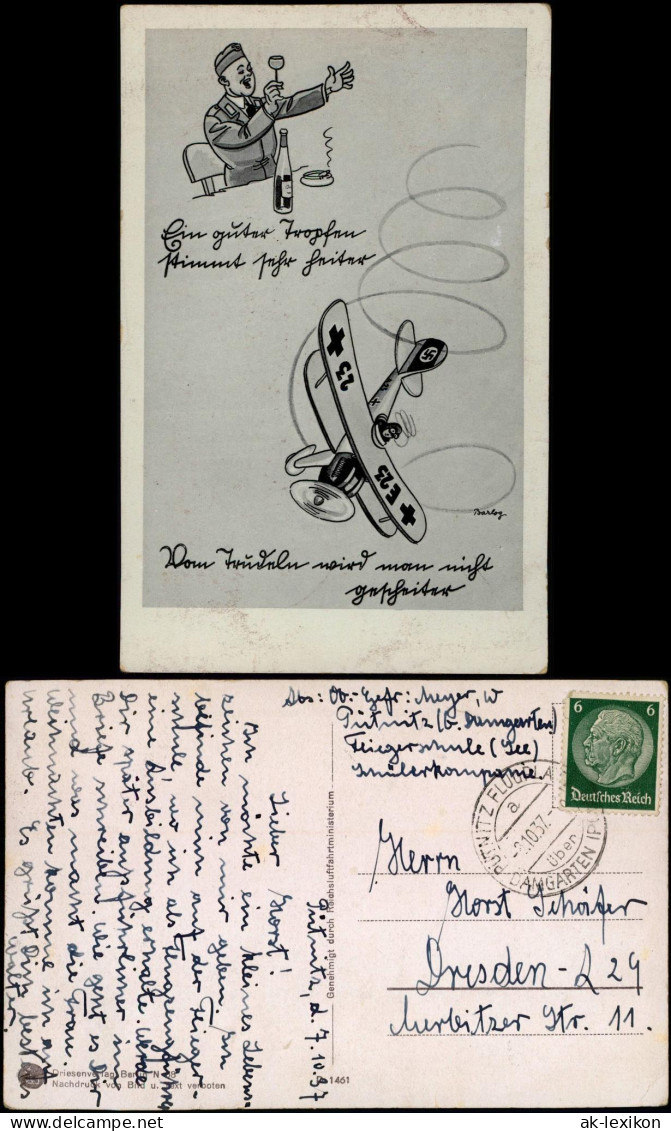 Ein guter Tropfen
stimmt sehr heiter
23
E23
Barlog
Vom Trudeln wird man nicht
gescheiter
Abs: Ob.-Gefr: Meyer, W
Pütnitz (b. Damgarten)
Fliegerschule (See)
Schülerkompanie.
6 6
Deutsches Reich
PÜTNITZ FLUGPLA
a
10.37.
über
DAMGARTEN (P
Herrn
Horst Schäfer
Dresden-A 29
Merbitzer Str. 11.
Pütnitz, d. 7.10.37
Lieber Horst!
Ich möchte ein kleines Lebens-
zeichen von mir geben. Ich
befinde mich auf der Flieger-
schule, wo ich als Flugzeugführer
eine Ausbildung erhalte. Werde
Dir später ausführlicher im
Briefe schreiben. Wie geht es Dir
und was macht die Frau.
Weihnachten komme ich auf
Urlaub. Es grüßt Dich bestens
Walter
Genehmigt durch Reichsluftfahrtministerium
1461
Driesenverlag Berlin N
Nachdruck von Bild u. Text verboten
ak-lexikon